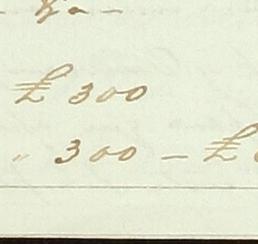 £ 300
" 300 – £